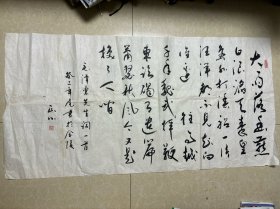 大雨落幽燕
白浪滔天秦皇
岛外打鱼船一片
汪洋都不见知向
谁边 往事越
千年魏武挥鞭
东临碣石有遗篇
萧瑟秋风今又是
换了人间
毛泽东先生词一首
书于金陵